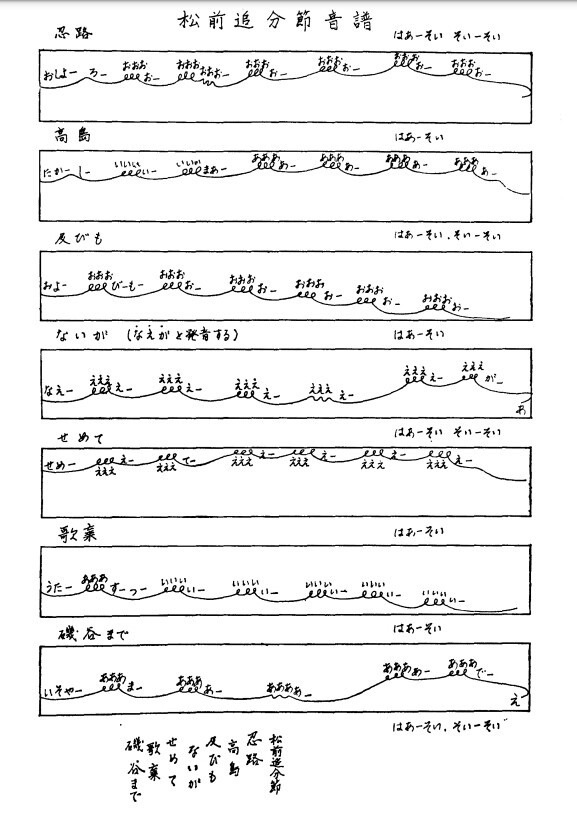 松前追分節音譜
忍路 はあーそい そいーそい
おしよー ろー おおお おー おおお おおお おー おおお おー おおお おー おおお おー おおお おー
高島 はあーそい
たかー しー いいい いー いいい まあー あああ あー あああ あー あああ あー あああ あー
及びも はあーそい、そいーそい
およー おおお びーもー おおお おー おおお おー おおお おー おおお おー おおお おー
ないが (なえがと発音する) はあーそい
なえー えええ えー えええ えー えええ えー えええ えー えええ えー えええ がー
お
せめて はあーそい そいーそい
せめー えええ えー えええ てー えええ えー えええ えー えええ えー えええ えー
歌棄 はあーそい
うたー あああ すーつー いいい いー いいい いー いいい いー いいい いー いいい いー
磯谷まで はあーそい
いそやー あああ まー あああ あー あああ あー あああ あー あああ でー
え
はあーそい、そいーそい
松前追分節
忍路
高島
及びも
ないが
せめて
歌棄
磯谷まで